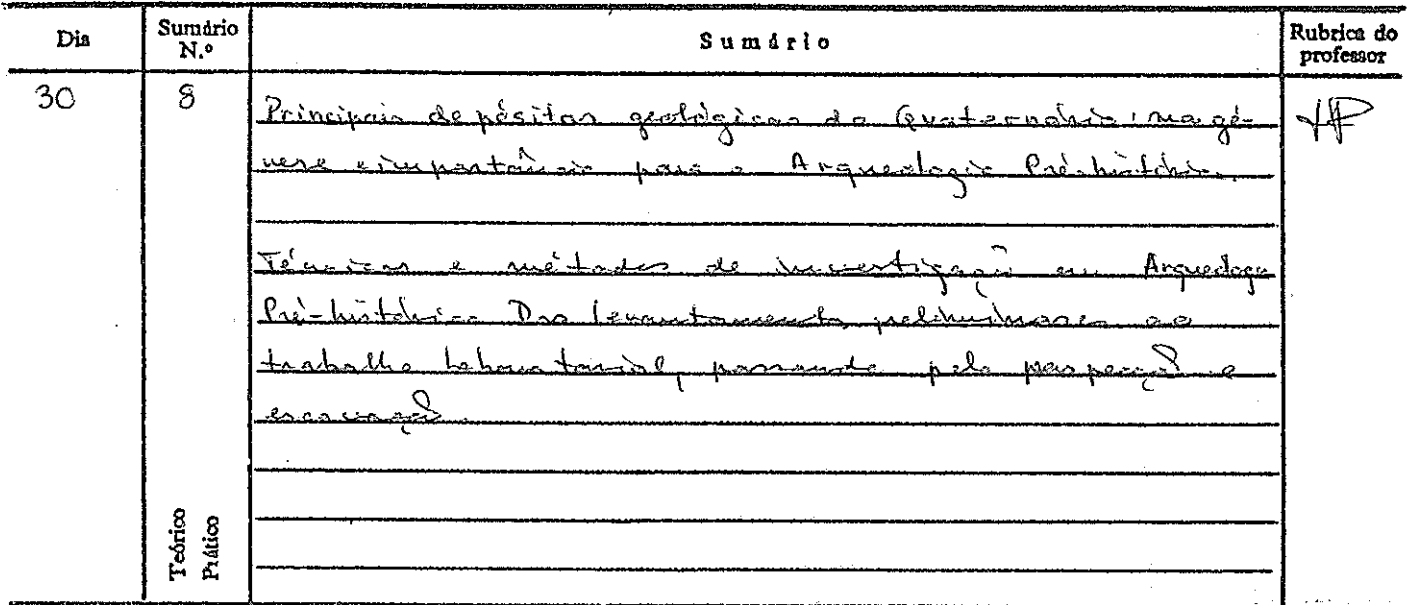 Dia
Sumário N.º
Sumário
Rubrica do professor
30
8
Principais depósitos geológicos do Quaternário: sua gé-
nese e importância para a Arqueologia Pré-histórica.
Técnicas e métodos de investigação em Arqueologia
Pré-histórica Dos levantamentos preliminares ao
trabalho laboratorial, passando pela prospecção e
escavação.
Teórico
Prático